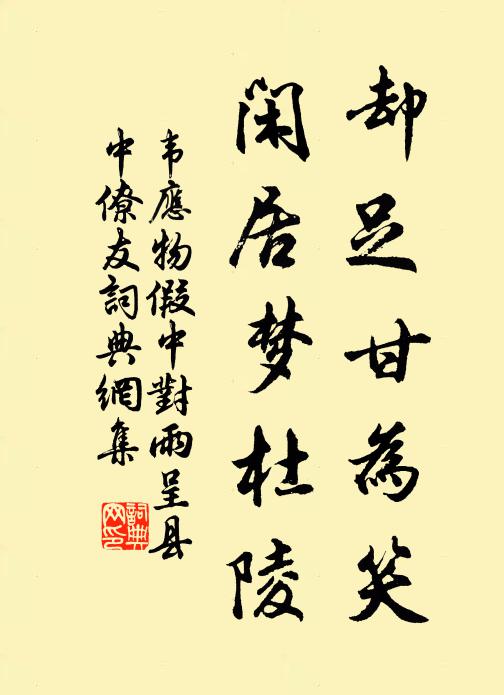 却足甘為笑
闲居梦杜陵
韦應物假中對雨呈县
中僚友詞典網集
詞典
网印